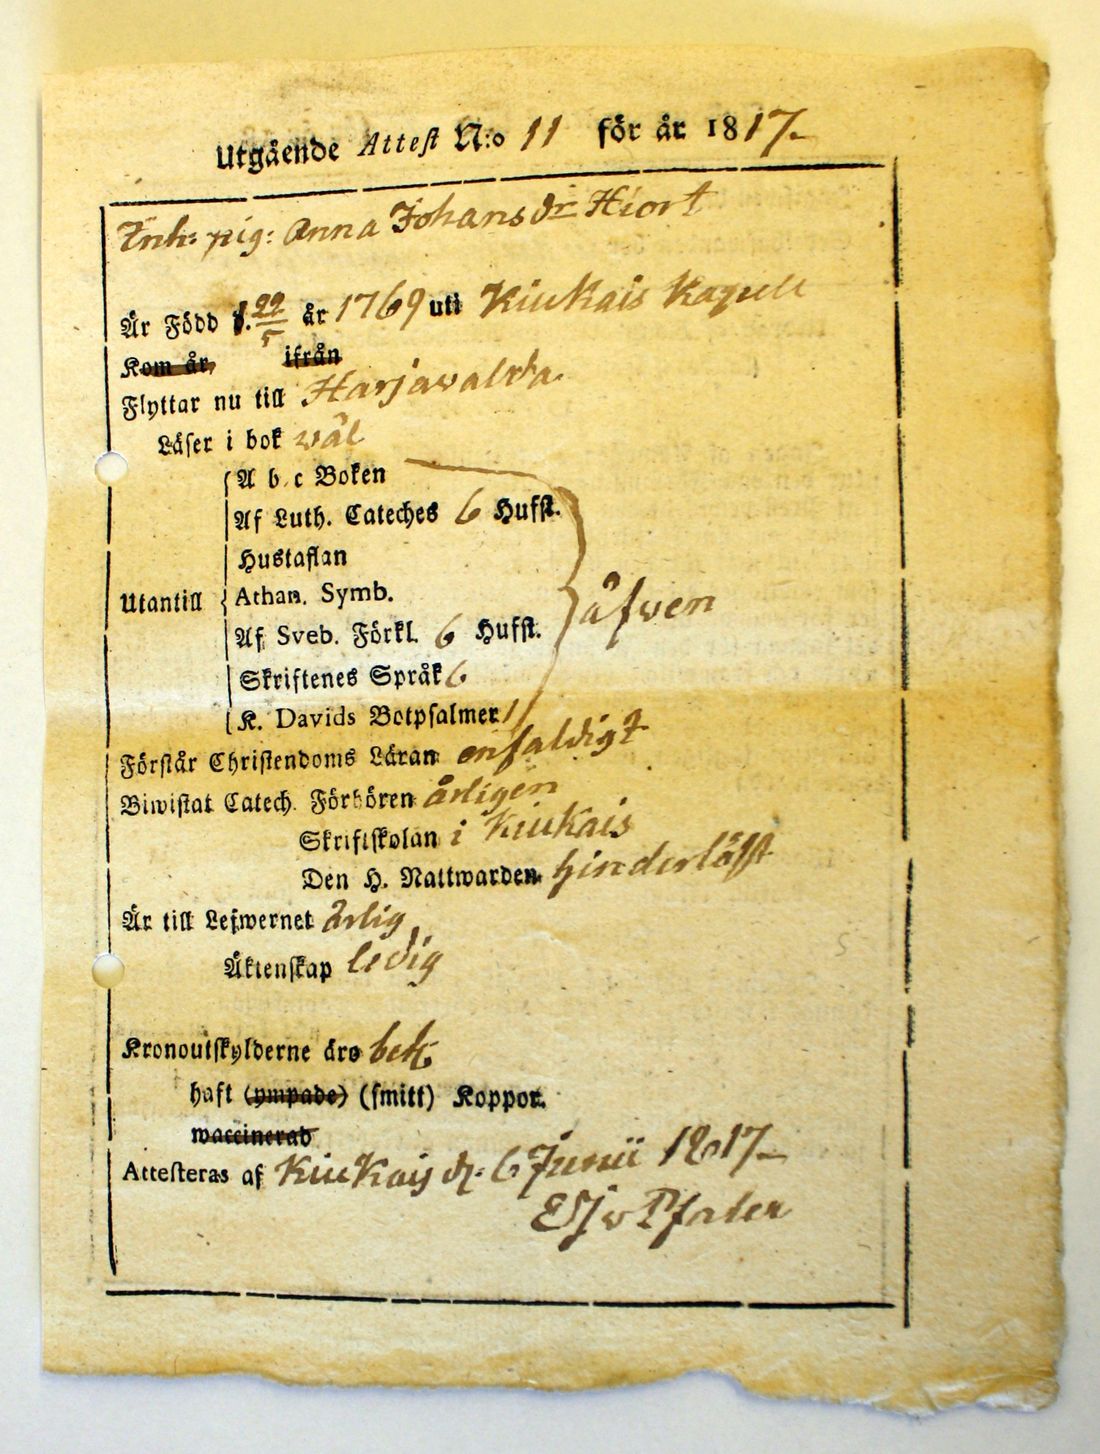 Utgående Attest N:o 11 för år 1817.
Inh: pig: Anna Johans dr Hiort
Är Född d. 22/5 år 1769 uti Kiukais Kapell
Kom år, ifrån
Flyttar nu till Harjavalda.
Läser i bok wäl
A b c Boken
Af Luth. Cateches 6 Hufst.
Hustaflan
Utantill Athan. Symb. äfwen
Af Sveb. Förkl. 6 Hufst.
Skriftenes Språk 6
K. Davids Botpsalmer
Förstår Christendoms Läran enfaldigt
Biwistat Catech. Förhören årligen
Skriftskolan i Kiukais
Den H. Nattwarden hinderlöst
Är till Lefwernet ärlig
Äktenskap ledig
Kronoutskylderne äro bet.
haft (ympade) (smitt) Koppor.
waccinerad
Attesteras af Kiukais d. 6 Junii 1817